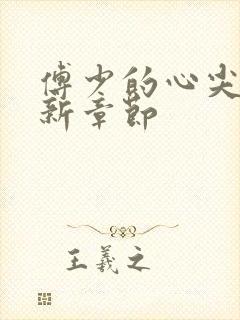 傅少的心尖
新章节
王羲之